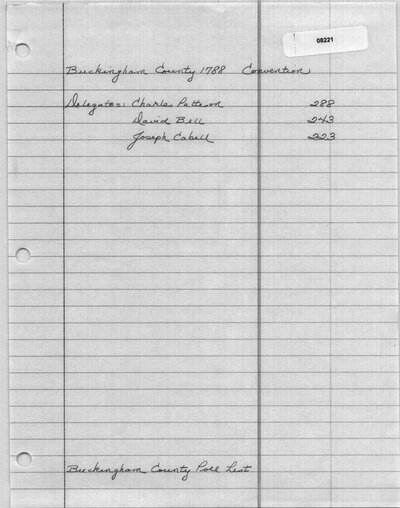 08221
Buckingham County 1788 Convention
Delegates: Charles Patteson 288
David Bell 243
Joseph Cabell 223
Buckingham County Poll List